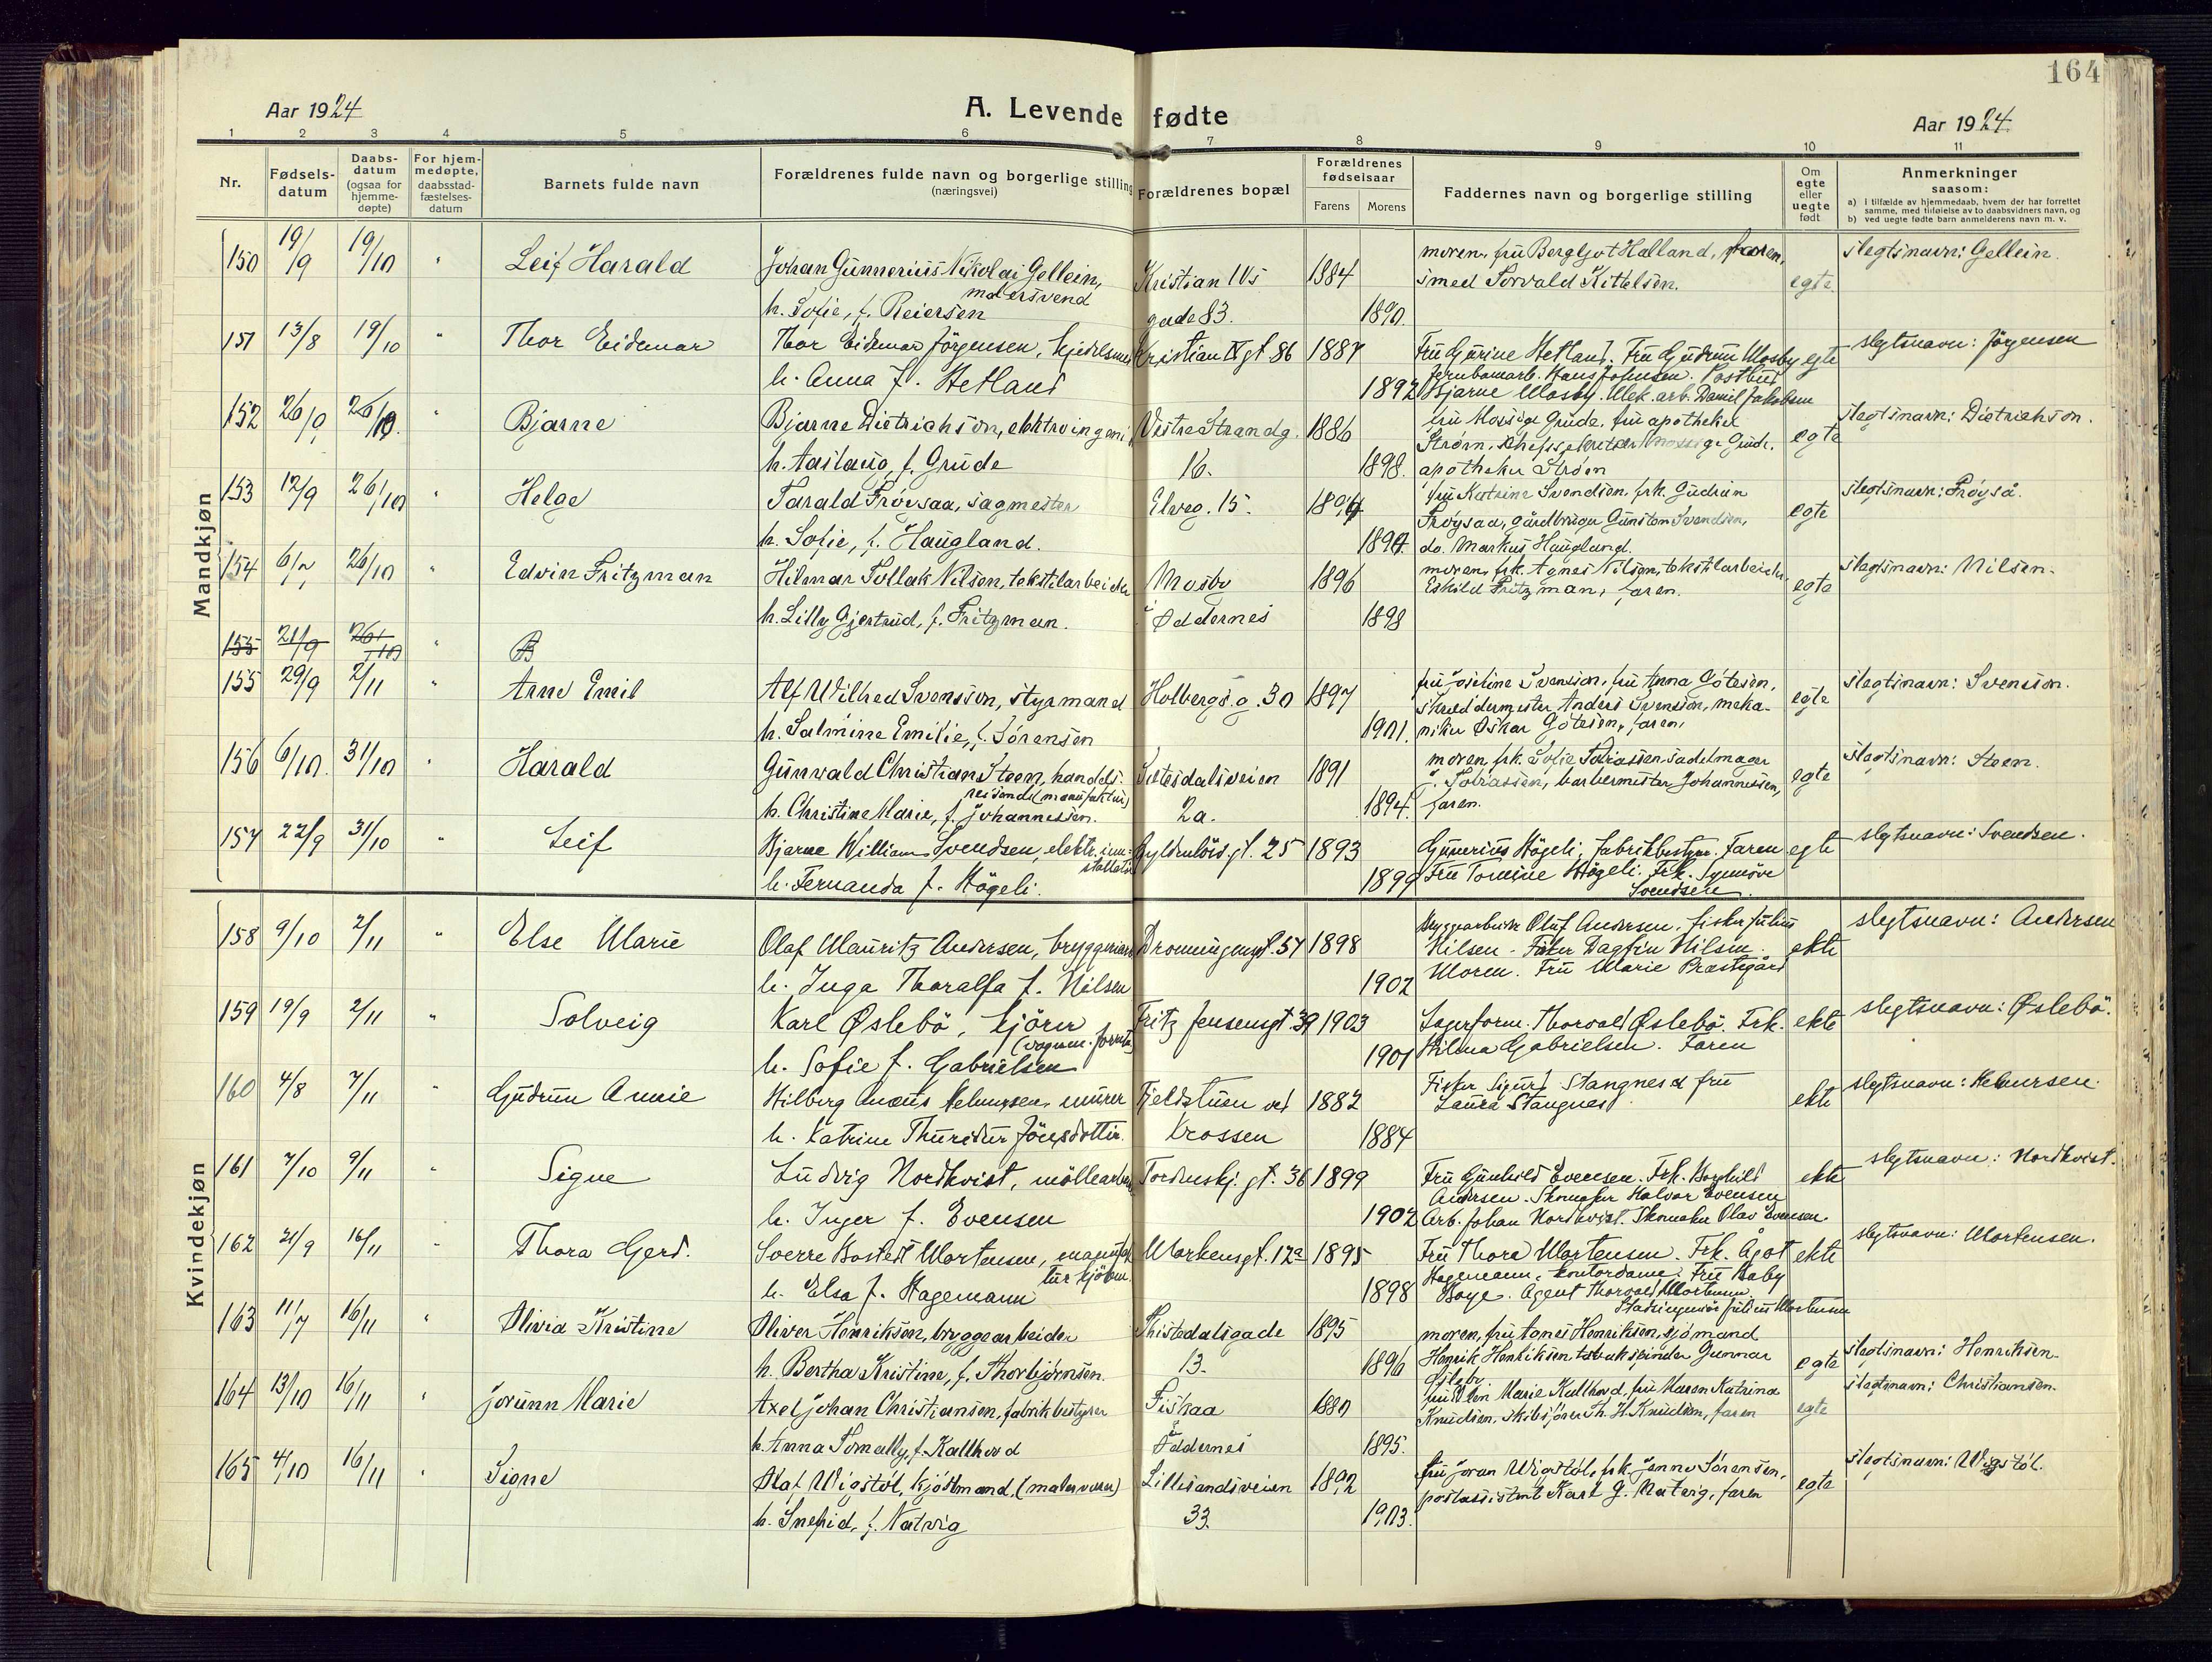 164
Aar 1924
A. Levende fødte
Aar 1924
1 2 3 4 5 6 7 8 9 10 11
Nr.
Fødsels-
datum
Daabs-
datum
(ogsaa for
hjemme-
døpte)
For hjem-
medøpte,
daabsstad-
fæstelses-
datum
Barnets fulde navn
Forældrenes fulde navn og borgerlige stilling
(næringsvei)
Forældrenes bopæl
Forældrenes
fødselsaar
Farens Morens
Faddernes navn og borgerlige stilling
Om
egte
eller
uegte
født
Anmerkninger
saasom:
a) i tilfælde av hjemmedaab, hvem der har forrettet
samme, med tilføielse av to daabsvidners navn, og
b) ved uegte fødte barn anmelderens navn m. v.
Mandkjøn
150 19/9 19/10 " Leif Harald
Johan Gunnerius Nikolai Gellein,
malersvend
h. Sofie, f. Reiersen
Kristian IVs
gade 83.
1884
1890.
moren, fru Bergljot Halland, faren,
smed Torvald Kittelsen.
egte
slegtsnavn: Gellein.
151 13/8 19/10 " Thor Eidemar
Thor Eidemar Jörgensen, kjedelsmed
h. Anna f. Hetland
Kristian IV gt. 86
1887
1892
Fru Gurine Hetland. Fru Gudrun Mosby
Jernbanearb. Hans Johnsen. Postbud
Bjarne Mosby. Mek. arb. Daniel Jakobsen
egte
slegtsnavn: Jörgensen
152 26/9 26/10. " Bjarne
Bjarne Dietrichson, elektroingeniør
h. Aaslaug, f. Grude
Vestre Strandg.
16.
1886
1898.
fru Mossige Grude, fru apotheker
Strøm, Mossige Grude.
apotheker Strøm
egte
slegtsnavn: Dietrichson.
153 12/9 26/10 " Helge
Tarald Frøysaa, sagmester
h. Sofie, f. Haugland.
Elveg. 15.
1894
1894.
fru Katrine Svendsen, frk. Gudrun
Frøysaa, gårdbruger Gunsten Svendsen,
do. Markus Haugland.
egte
slegtsnavn: Frøyså.
154 6/7 26/10 " Edvin Fritzman
Hilmar Tollak Nilsen, tekstilarbeider
h. Lilly Gjertrud, f. Fritzman.
Mosby
i Oddernes
1896
1898
moren, frk. Agnes Nilsen, tekstilarbeider
Eskild Fritzman, faren.
egte
slegtsnavn: Nilsen.
155 21/9 26/10 " B
155 29/9 2/11 " Arne Emil
Alf Wilhed Svensson, styrmand
h. Salmine Emilie, f. Sørensen
Holbergs g. 30
1897
1901.
fru Josefine Svension, fru Anna Gøtesen,
skreddermester Anders Svension, meka-
niker Oskar Gøtesen, faren,
egte
slegtsnavn: Svension.
156 6/10. 31/10 " Harald
Gunvald Christian Steen, handels-
reisende (manufaktur)
h. Christine Marie, f. Johannessen.
Setesdalsveien
2a.
1891
1894.
moren, frk. Sofie Tobiassen, sadelmager
J. Tobiassen, barbermester Johannessen,
faren.
egte
slegtsnavn: Steen.
157 22/9 31/10 " Leif
Bjarne William Svendsen, elektr. inn-
stallatør
h. Fernanda f. Högeli.
Gyldenlövs gt. 25
1893
1899
Gunerius Högeli, fabrikbestyr. Faren
Fru Tomine Högeli. Frk. Synnöve
Svendsen.
egte
slegtsnavn: Svendsen.
Kvindekjøn
158 9/10 2/11 " Else Marie
Olaf Mauritz Andersen, bryggeriarb.
h. Inga Thoralfa f. Nilsen
Dronningensgt. 57
1898
1902
Bryggearbeider Oluf Andersen. fisker Julius
Nilsen. Fisker Dagfin Nilsen.
Moren. Fru Marie Præstegård
ekte
slegtsnavn: Andersen
159 19/9 2/11 " Solveig
Karl Øslebö, kjörer
(vognm. forretn.)
h. Sofie f. Gabrielsen
Fritz Jensensgt. 39
1903
1901
Lagerform. Thorvald Øslebö. Frk.
Hilma Gabrielsen. Faren
ekte
slegtsnavn: Øslebö.
160 4/8 7/11 " Gudrun Annie
Hilberg Helmersen, murer
h. Katrine Thuridur Jónsdottir.
Fjeldstuen ved
Krossen
1882
1884
Fisker Sigurd Stangnes & fru
Laura Stangnes
ekte
slegtsnavn: Helmersen.
161 7/10 9/11 " Signe
Ludvig Nordkvist, möllearbeider
h. Inger f. Evensen
Tordenskj. gt. 36
1899
1902
Fru Gunhild Evensen. Frk. Borghild
Andersen. Skomaker Halvor Evensen
Arb. Johan Nordkvist. Skomaker Olav Evensen.
ekte
slegtsnavn: Nordkvist.
162 21/9 16/11 " Thora Gerd.
Sverre Bosted Mortensen, manufak
tur kjöbm.
h. Elsa f. Hagemann
Markensgt. 12a
1895
1898
Fru Thora Mortensen. Frk. Agot
Hagemann, kontordame. Fru Baby
Boye. Agent Thorvald Mortensen.
Stadsingeniör Julius Mortensen
ekte
slegtsnavn: Mortensen.
163 11/7 16/11 " Olivia Kristine
Oliver Henriksen, bryggearbeider
h. Bertha Kristine, f. Thorbjørnsen.
Thistedalsgade
13.
1895
1896
moren, fru Agnes Henriksen, sjømand
Henrik Henriksen, tobakspinder Gunnar
Øsleby.
egte
slegtsnavn: Henriksen.
164 13/10 16/11 " Jorunn Marie
Axel Johan Christiansen, fabrikbestyrer
h. Anna Tomally, f. Kallhovd
Fiskaa
i Oddernes
1880
1895.
fru Marie Kallhovd, fru Maren Katrina
Knudsen, skibsfører Th. H. Knudsen, faren
egte
slegtsnavn: Christiansen.
165 4/10 16/11 " Signe
Olaf Wigstøl, kjøbmand, (malervarer)
h. Snefrid, f. Natvig
Lillesandsveien
33.
1892
1903.
fru Joran Wigstøl, frk. Jenny Sørensen,
postassistent Karl G. Natvig, faren
egte
slegtsnavn: Wigstøl.